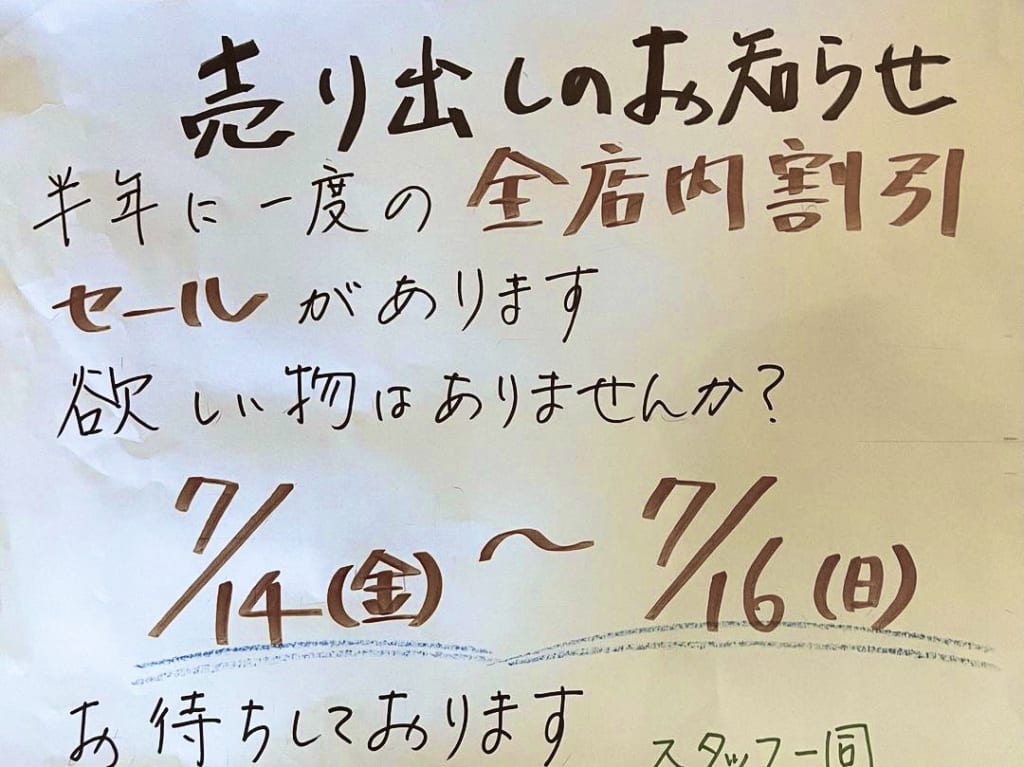 売り出しのお知らせ
半年に一度の全店内割引
セールがあります
欲しい物はありませんか?
7/14(金)〜7/16(日)
お待ちしております
スタッフ一同